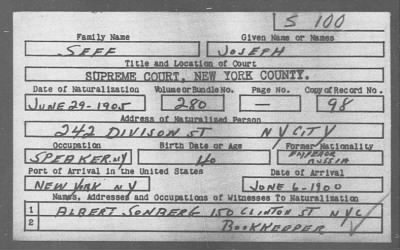 S 100
Family Name Given Name or Names
SEFF JOSEPH
Title and Location of Court
SUPREME COURT, NEW YORK COUNTY.
Date of Naturalization Volume or Bundle No. Page No. Copy of Record No.
JUNE 29-1905 280 — 98
Address of Naturalized Person
242 DIVISON ST N Y CITY
Occupation Birth Date or Age Former Nationality
40 EMPEROR RUSSIA
Port of Arrival in the United States Date of Arrival
NEW YORK N Y JUNE 6-1900
Names, Addresses and Occupations of Witnesses To Naturalization
1 ALBERT SONBERG 150 CLINTON ST NYC
2 BOOKKEEPER